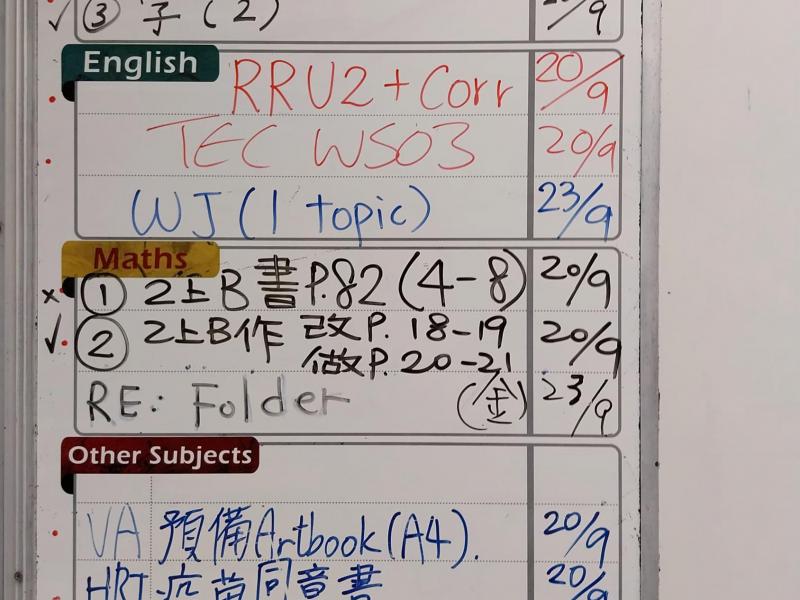 ✓ ③ 字 (2) 20/9
English
RRU2 + Corr 20/9
TEC WS03 20/9
WJ (1 topic) 23/9
Maths
× ① 2上B 書 P.82 (4-8) 20/9
✓ ② 2上B作 改 P. 18-19 20/9
做 P. 20-21
RE: Folder (金) 23/9
Other Subjects
VA 預備Artbook(A4). 20/9
HRT 疫苗同意書 20/9